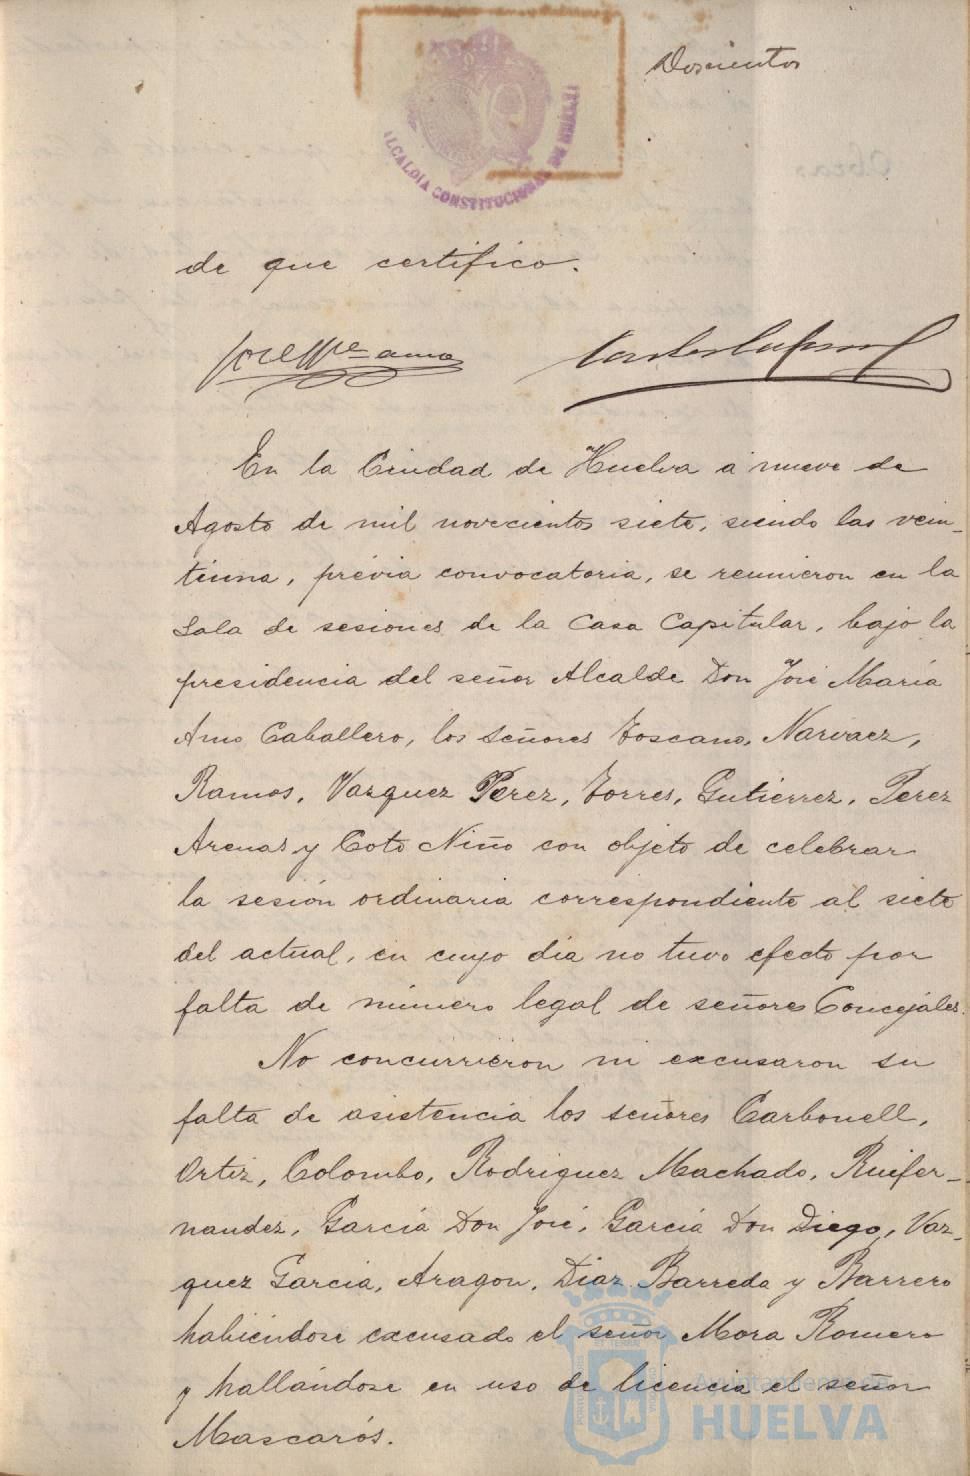 Doscientos
ALCALDIA CONSTITUCIONAL DE HUELVA
de que certifico.
José Mª amo
En la Ciudad de Huelva a nueve de
Agosto de mil novecientos siete, siendo las vein-
tiuna, prévia convocatoria, se reunieron en la
Sala de sesiones de la Casa Capitular, bajo la
presidencia del señor Alcalde Don José María
Amo Caballero, los señores Toscano, Narvaez,
Ramos, Vazquez Perez, Torres, Gutierrez, Perez
Arenas y Coto Niño con objeto de celebrar
la sesión ordinaria correspondiente al siete
del actual, en cuyo día no tuvo efecto por
falta de número legal de señores Concejales.
No concurrieron ni excusaron su
falta de asistencia los señores Carbonell,
Ortiz, Colombo, Rodriguez Machado, Ruifer-
nandez, García Don José, García Don Diego, Vaz-
quez García, Aragon, Diaz Barreda y Barrero
habiéndose excusado el señor Mora Romero
y hallándose en uso de licencia el señor
Mascarós.
Ayuntamiento de
HUELVA